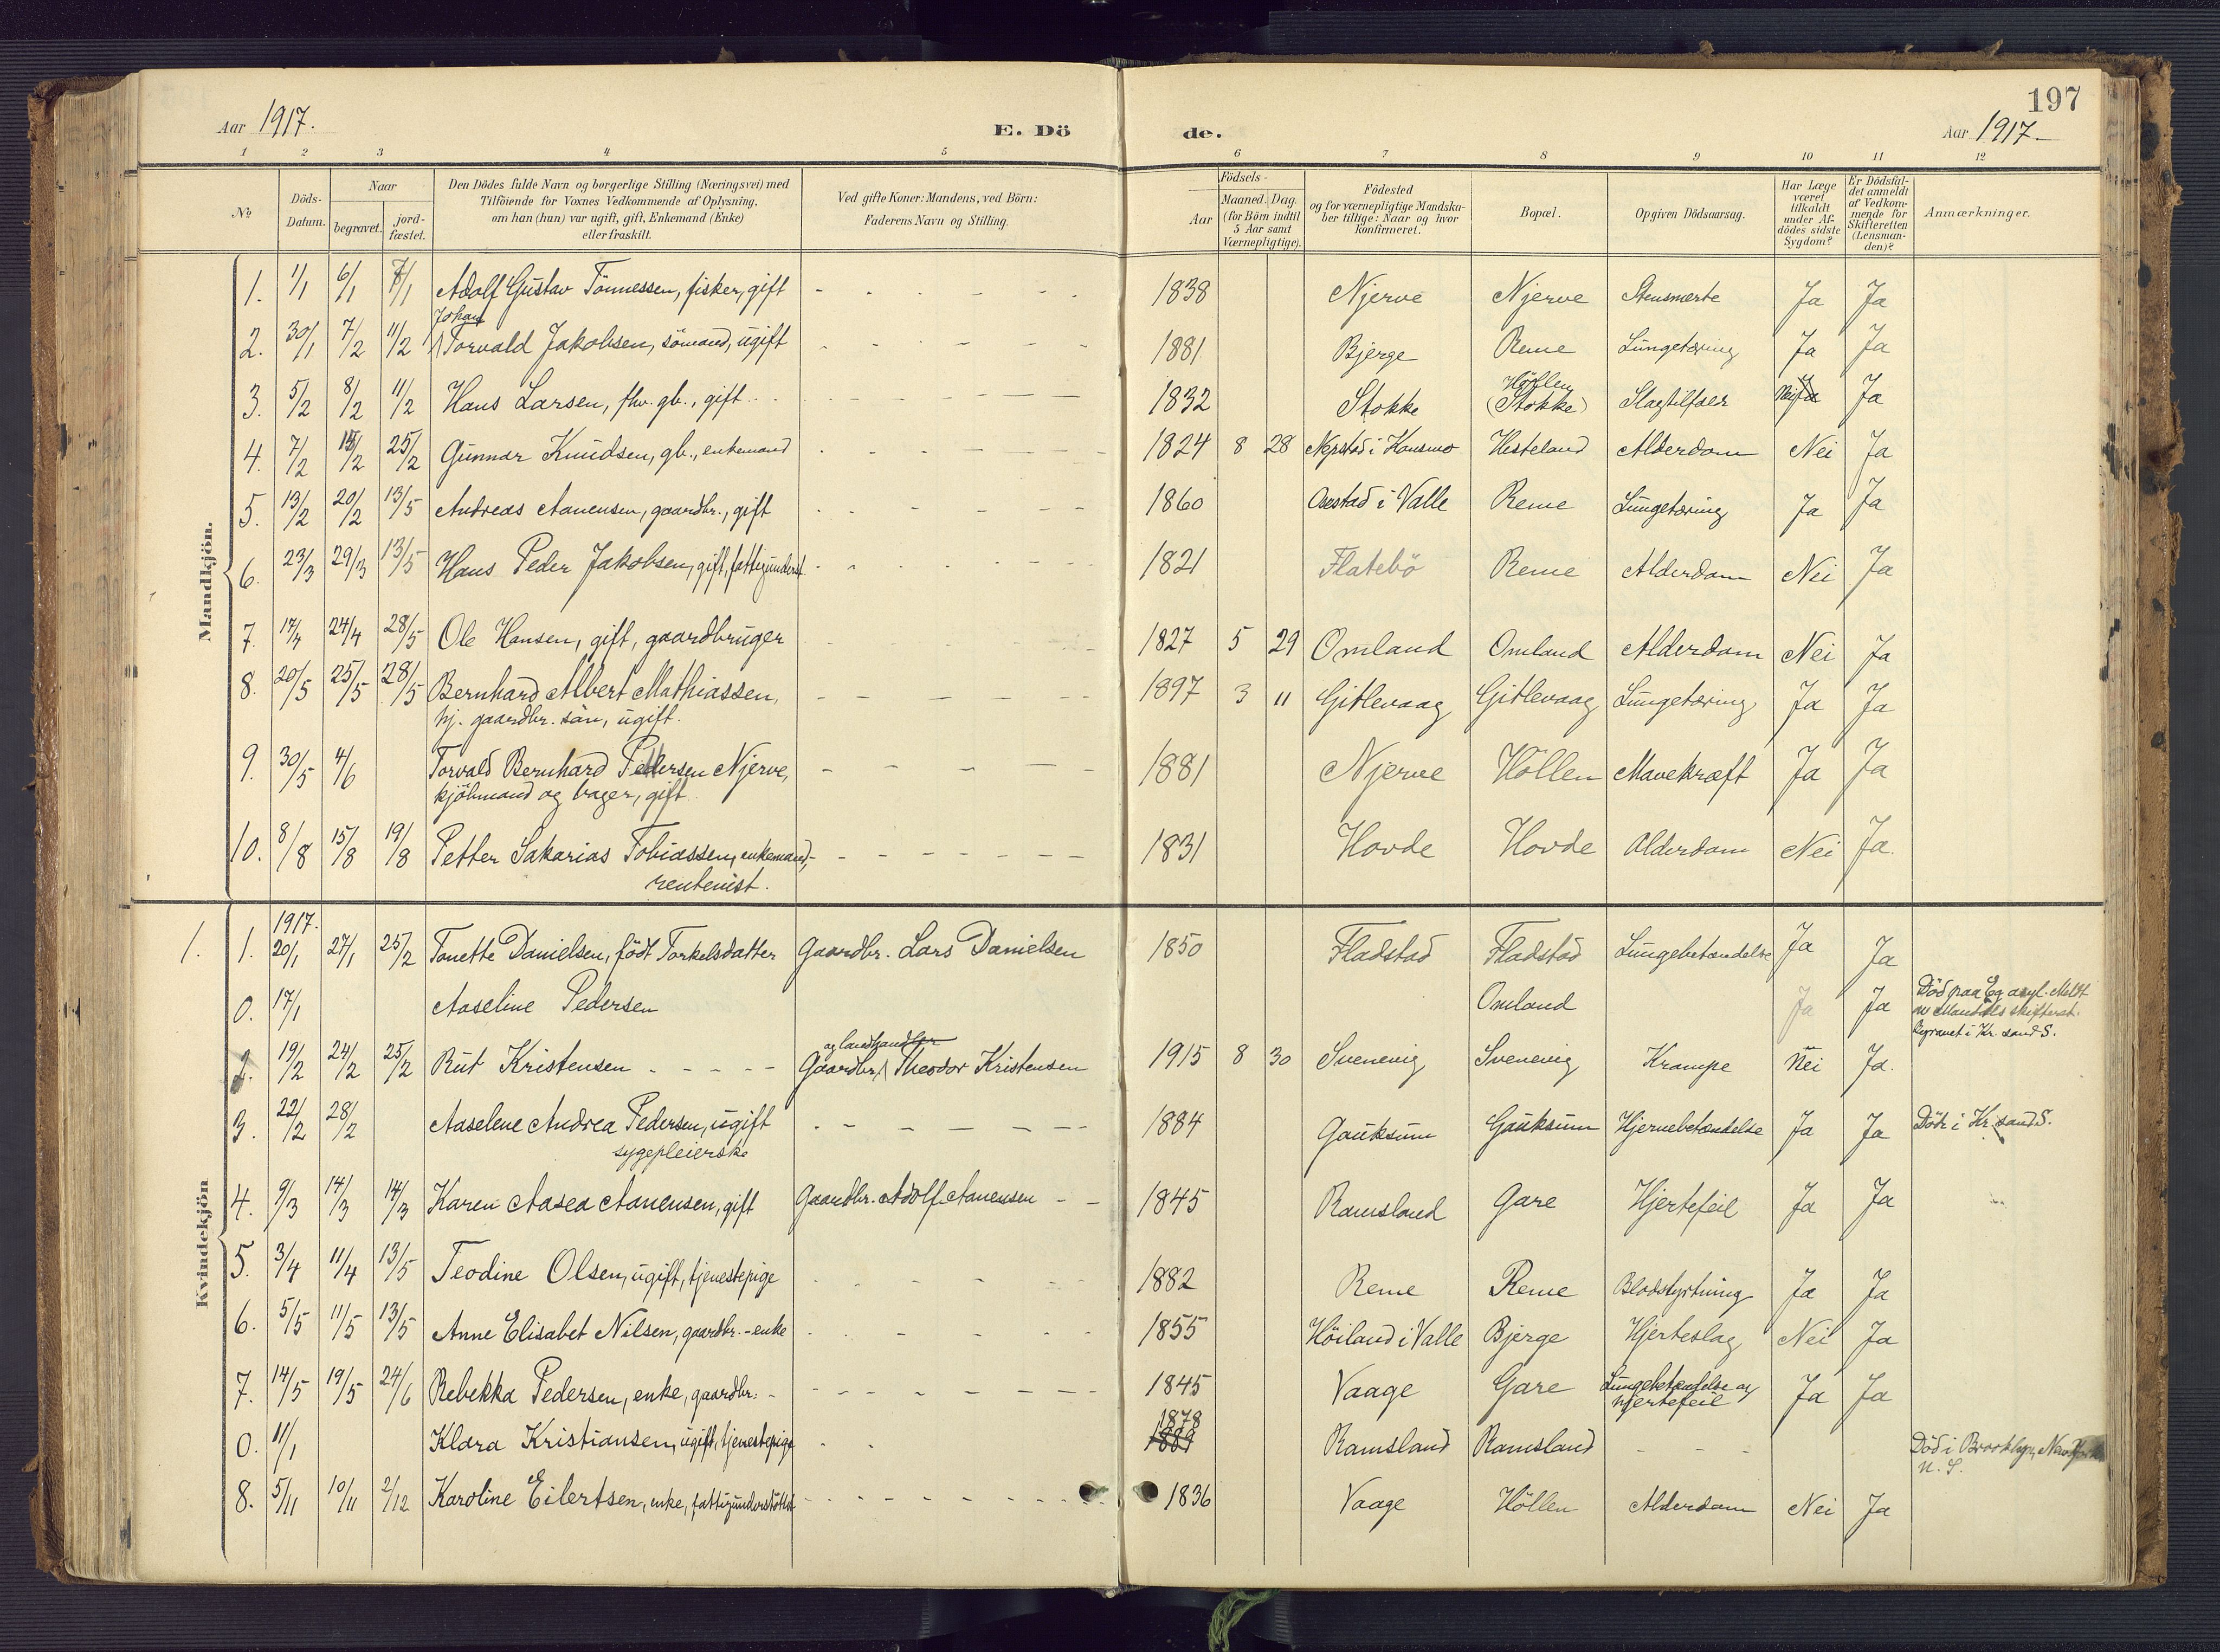 197
Aar 1917.
E. Dö
de.
Aar 1917
1 2 3 4 5 6 7 8 9 10 11 12
No
Döds-Datum.
Naar
begravet.
jord-fæstet.
Den Dödes fulde Navn og borgerlige Stilling (Næringsvei) med
Tilföiende for Voxnes Vedkommende af Oplysning,
om han (hun) var ugift, gift, Enkemand (Enke)
eller fraskilt.
Ved gifte Koner: Mandens, ved Börn:
Faderens Navn og Stilling.
Födsels-
Aar
Maaned.
Dag.
(for Börn indtil
5 Aar samt
Værnepligtige).
Födested
og for værnepligtige Mandska-
ber tillige: Naar og hvor
konfirmeret.
Bopæl.
Opgiven Dödsaarsag.
Har Læge
været
tilkaldt
under Af-
dödes sidste
Sygdom?
Er Dödsfal-
det anmeldt
af Vedkom-
mende for
Skifteretten
(Lensman-
den)?
Anmærkninger.
Mandkjön.
1. 1/1 6/1 7/1 Adolf Gustav Tönnessen, fisker, gift 1838 Njerve Njerve Stensmerte Ja Ja
Johan
2. 30/1 7/2 11/2 Torvald Jakobsen, sömand, ugift 1881 Bjerge Reme Lungetæring Ja Ja
Höllen
3. 5/2 8/2 11/2 Hans Larsen, fhv. gb., gift 1832 Stokke (Stokke) Slagtilfælde Nei Ja Ja
4. 7/2 15/2 25/2 Gunnar Knudsen, gb., enkemand 1824 8 28 i Konsmo Hesteland Alderdom Nei Ja
5. 13/2 20/2 13/5 Andreas Aanensen, gaardbr., gift 1860 Osestad i Valle Reme Lungetæring Ja Ja
6. 23/3 29/3 13/5 Hans Peder Jakobsen, gift, fattigunderst. 1821 Flatebö Reme Alderdom Nei Ja
7. 17/4 24/4 28/5 Ole Hansen, gift, gaardbruger 1827 5 29 Omland Omland Alderdom Nei Ja
8. 20/5 25/5 28/5 Bernhard Albert Mathiassen, 1897 3 11 Gitlevaag Gitlevaag Lungetæring Ja Ja
hj. gaardbr. sön, ugift.
9. 30/5 4/6 Torvald Bernhard Pedersen Njerve, 1881 Njerve Höllen Mavekræft Ja Ja
kjöbmand og bager, gift
10. 8/8 15/8 19/8 Petter Sakarias Tobiassen, enkemand, 1831 Hovde Hovde Alderdom Nei Ja
rentenist.
Kvindekjön
1917.
1. 1. 20/1 27/1 25/2 Tonette Danielsen, födt Torkelsdatter Gaardbr. Lars Danielsen 1850 Fladstad Fladstad Lungebetændelse Ja Ja
0. 17/1 Aaseline Pedersen Omland Ja Ja Död paa Eg asyl. Meldt
Mandals skifteret.
Begravet i Kr. sand S.
og landhandler
2. 19/2 24/2 25/2 Rut Kristensen Gaardbr. Theodor Kristensen 1915 8 30 Svenevig Svenevig Krampe Nei Ja
3. 22/2 28/2 Aaselene Andrea Pedersen, ugift 1884 Gauksum Gauksum Hjernebetændelse Ja Ja Död i Kr. sand S.
sygepleierske
4. 9/3 14/3 14/3 Karen Aasea Aanensen, gift Gaardbr. Adolf Aanensen 1845 Ramsland Gare Hjertefeil Ja Ja
5. 3/4 11/4 13/5 Teodine Olsen, ugift, tjenestepige 1882 Reme Reme Blodstyrtning Ja Ja
6. 5/5 11/5 13/5 Anne Elisabet Nilsen, gaardbr.-enke 1855 Höiland i Valle Bjerge Hjerteslag Nei Ja
7. 14/5 19/5 24/6 Rebekka Pedersen, enke, gaardbr. 1845 Vaage Gare Lungebetændelse og Ja Ja
hjertefeil
1878
0. 11/1 Klara Kristiansen, ugift, tjenestepige 1889 Ramsland Ramsland Död i Brooklyn, New York
N. S.
8. 5/11 10/11 2/12 Karoline Eilertsen, enke, fattigunderstöttet 1836 Vaage Höllen Alderdom Nei Ja